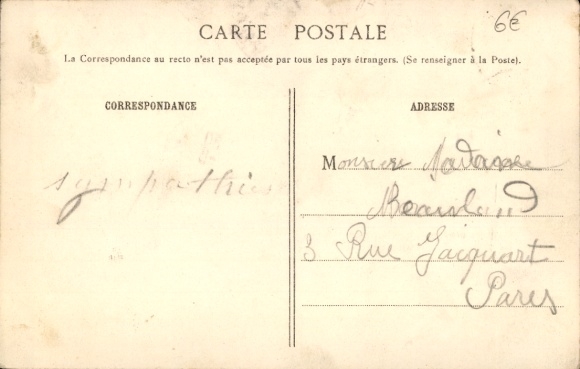 6€
CARTE POSTALE
La Correspondance au recto n'est pas acceptée par tous les pays étrangers. (Se renseigner à la Poste).
CORRESPONDANCE
ADRESSE
sympathies
Monsieur Madame
3 Rue Jacquart
Paris